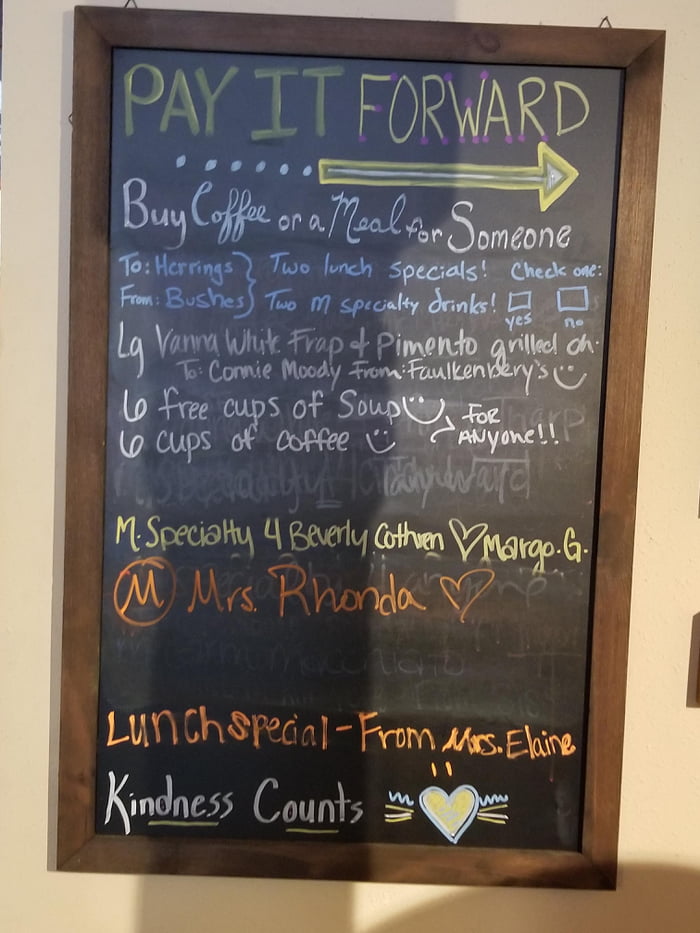 PAY IT FORWARD
Buy Coffee or a Meal for Someone
To: Herrings } Two lunch specials! Check one:
From: Bushes } Two m specialty drinks! yes no
Lg Vanna White Frap & Pimento grilled ch.
To: Connie Moody From: Faulkenbery's
6 free cups of Soup
6 cups of coffee
FOR
ANyone!!
M. Specialty 4 Beverly Cothren ♡ Margo. G.
M Mrs. Rhonda ♡
Lunch special - From Mrs. Elaine
Kindness Counts